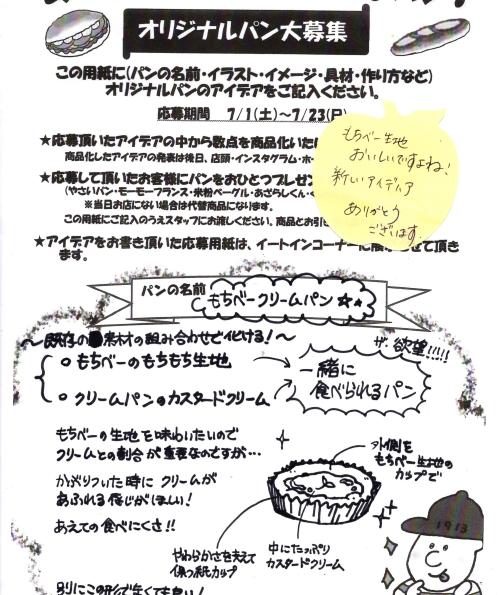 オリジナルパン大募集
この用紙に(パンの名前・イラスト・イメージ・具材・作り方など)
オリジナルパンのアイデアをご記入ください。
応募期間 7/1(土)〜7/23(日)
★応募頂いたアイデアの中から数点を商品化いた
商品化したアイデアの発表は後日、店頭・インスタグラム・ホ
★応募して頂いたお客様にパンをおひとつプレゼン
(やさいパン・モーモーフランス・米粉ベーグル・あざらしくん・
※当日お店にない場合は代替商品になります。
この用紙にご記入のうえスタッフにお渡しください。商品とお引き
★アイデアをお書き頂いた応募用紙は、イートインコーナーに させて頂き
ます。
もちべー生地
おいしいですよね!
新しいアイディア
ありがとう
ございます。
パンの名前
もちべークリームパン☆★
〜既存の 素材の組み合わせで化ける!〜
もちべーのもちもち生地
クリームパンのカスタードクリーム
ザ・欲望!!!!!
一緒に
食べられるパン
もちべーの生地を味わいたいので
クリームとの割合が重要なのですが…
かぶりついた時にクリームが
あふれる感じがほしい!
あえての食べにくさ!!
外側を
もちべー生地の
カップで
やわらかさを支えて
紙カップ
中にたっぷり
カスタードクリーム
1913
別にこの形で なくても良い!